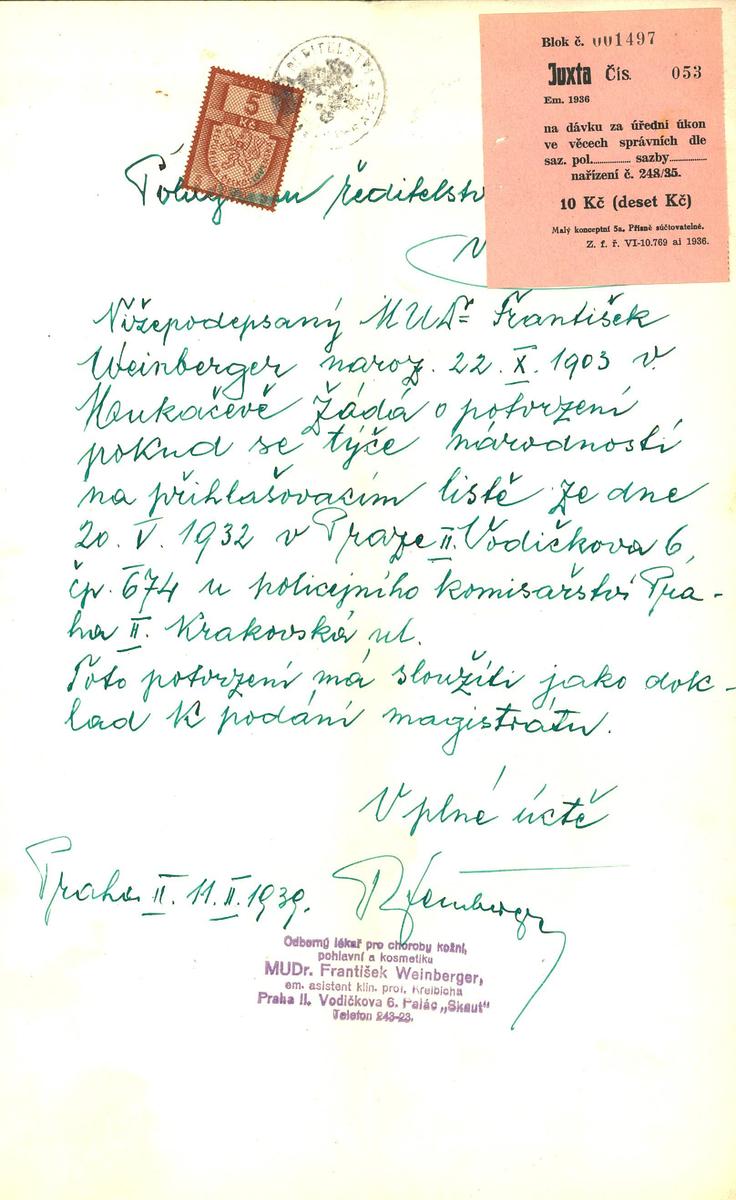 Blok č. 001497
Juxta Čís. 053
Em. 1936
na dávku za úřední úkon
ve věcech správních dle
saz. pol. sazby
nařízení č. 248/35.
10 Kč (deset Kč)
Malý konceptní 5a. Přísně súčtovatelné.
Z. f. ř. VI-10.769 ai 1936.
5
Kč
ředitelstv
Nížepodepsaný MUDr František
Weinberger naroz. 22. X. 1903 v
Mukačevě žádá o potvrzení
pokud se týče národnosti
na přihlašovacím listě ze dne
20. V. 1932 v Praze II. Vodičkova 6,
čp. 674 u policejního komisařství Pra-
ha II. Krakovská ul.
Toto potvrzení má sloužiti jako dok-
lad k podání magistrátu.
V plné úctě
Praha II. 11. II. 1939.
Weinberger
Odborný lékař pro choroby kožní,
pohlavní a kosmetiku
MUDr. František Weinberger,
em. asistent klin. prof. Kreibicha
Praha II. Vodičkova 6. Palác „Skaut"
Telefon 243-23.